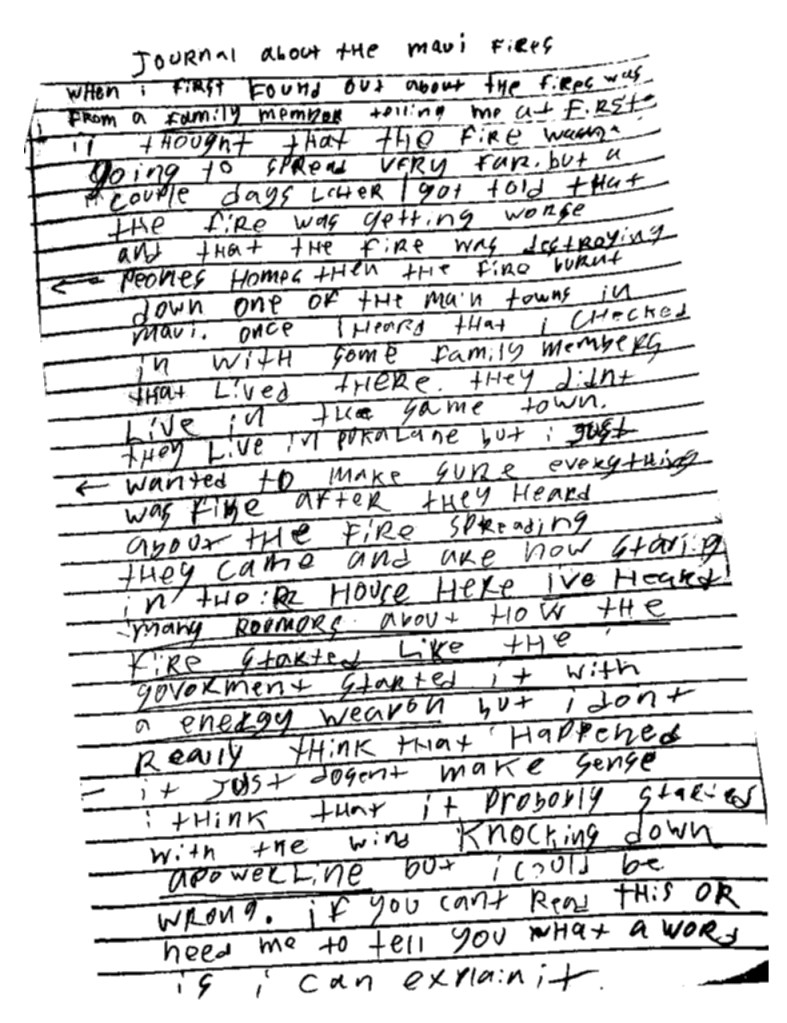 JOURNAL about the maui fires
when i first found out about the fires was
from a family member telling me at first
i thought that the fire wasn
going to spread very far. but a
couple days later I got told that
the fire was getting worse
and that the fire was destroying
peoples homes then the fire burnt
down one of the main towns in
maui. once i heard that i checked
in with some family members
that lived there. they didnt
Live in the same town.
they Live in pukalane but i just
wanted to make sure everything
was fine after they heard
about the fire spreading
they came and are now staring
in the:r house here ive heard
many roomors about how the
fire started like the
govorment started it with
a energy weapon but i dont
really think that happened
it just dosent make sense
i think that it probobly started
with the wind knocking down
a powerline but i could be
wrong. if you cant read this or
need me to tell you what a word
is i can explain it.